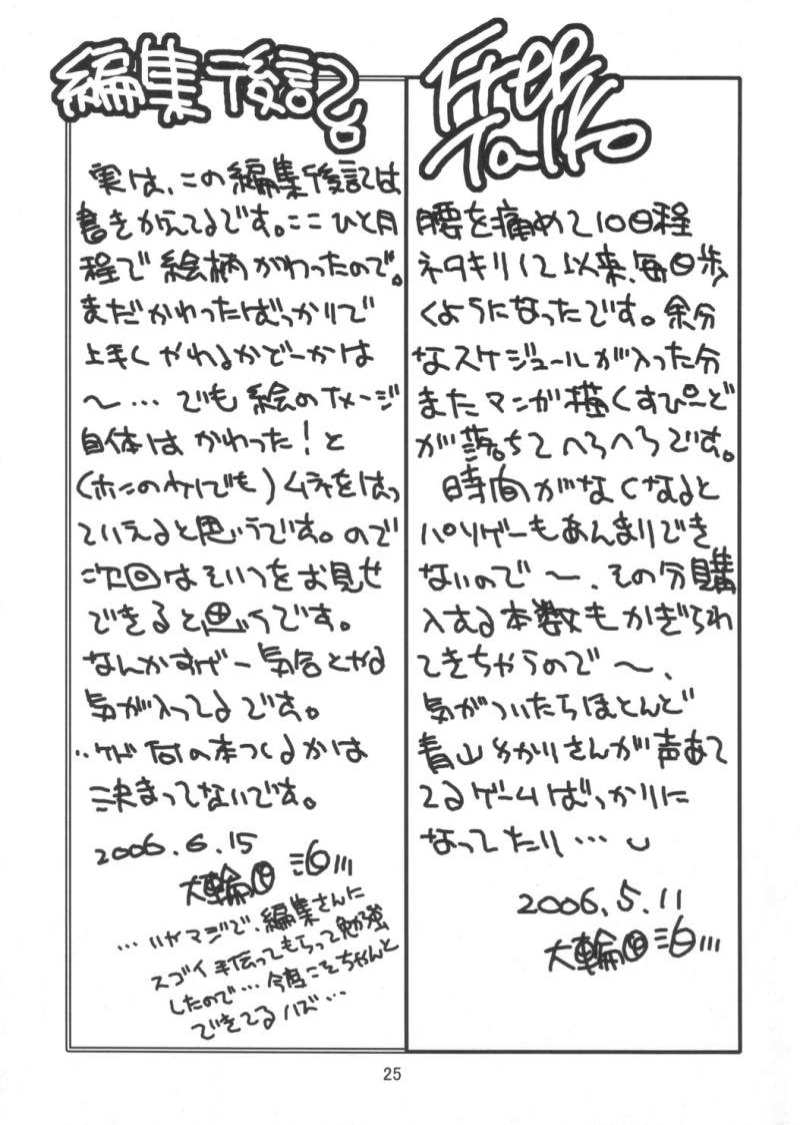 編集後記
実は、この編集後記は
書きかえてるです。ここひと月
程で絵柄がわったので。
まだかわったばっかりで
上手くやれるかどーかは
〜…でも絵のイメージ
自体はかわった！と
(ホンのケドでも)ムネをはっ
ていえると思うです。ので
次回はそいつをお見せ
できると思うです。
なんかすげー気合とかな
気が入ってるです。
‥ケド何の本つくるかは
決まってないです。
2006.6.15
大輪
…いやマジで、編集さんに
スゴイ手伝ってもらって勉強
したので…今度こそちゃんと
できてるハズ…
Free
Talk
腰を痛めて10日程
ネタキリして以来、毎日歩
くようになったです。余分
なスケジュールが入った分
またマンが描くすぴーど
が落ちてへろへろです。
時間がなくなると
パソゲーもあんまりでき
ないので〜、その分購
入する本数もかぎられ
てきちゃうので〜、
気がついたらほとんど
青山ゆかりさんが声あて
てるゲームばっかりに
なってたり…
2006.5.11
大輪
25